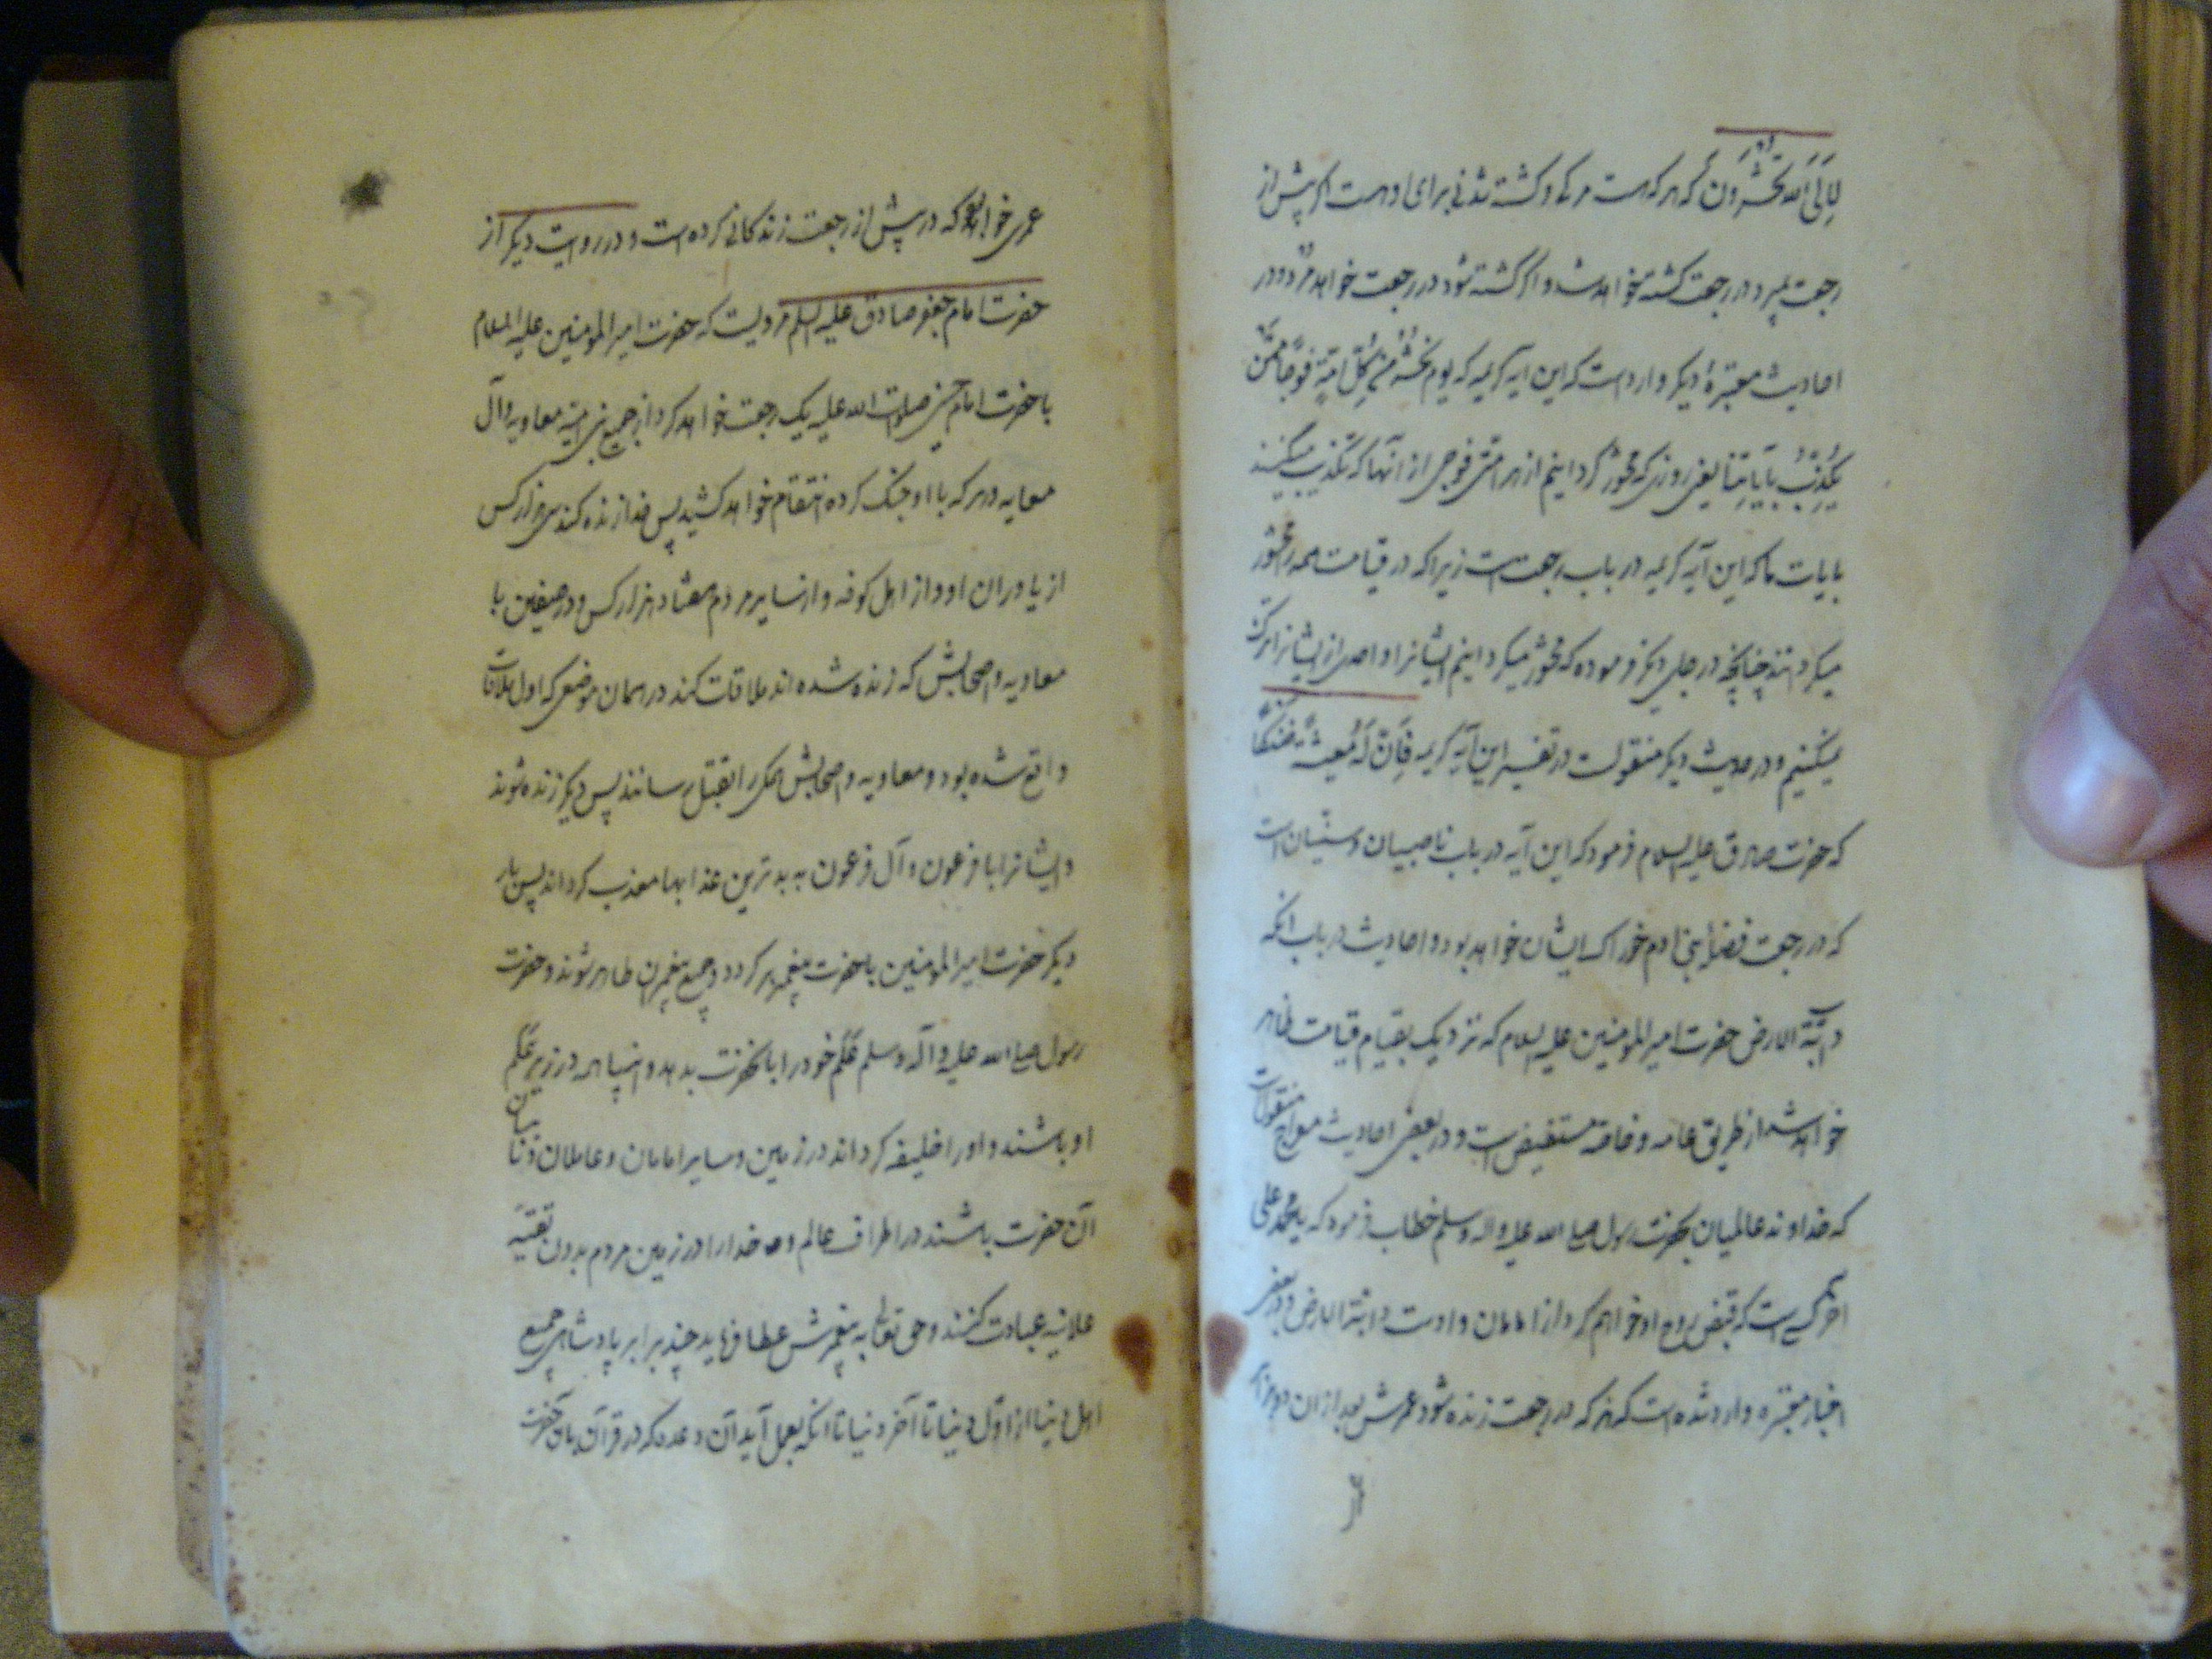 لَاِلَی الله تُحشَرُون که هر که هست مرکی و کشته شدنی برای او هست اگر پیش از
رجعت بمیرد در رجعت کشته خواهد شد و اگر کشته شود در رجعت خواهد مرد و در
احادیث معتبرهٔ دیکر وارد است که این آیه کریمه که یوم نَحشُرُ مِن کُلِّ اُمَّةٍ فَوجًا مِمَّن
یُکَذِّبُ بِآیَاتِنَا یعنی روزی که محشور کردانیم از هر امتی فوجی از آنها که تکذیب میکنند
بایات ما که این آیه کریمه در باب رجعت است زیرا که در قیامت همه را محشور
میکردانند چنانچه در جای دیکر فرموده که محشور میکردانیم ایشانرا و احدی از ایشانرا ترک
نمیکنیم و در حدیث دیکر منقولست در تفسیر این آیه کریمه فَاِنَّ لَهُ مَعیشَةً ضَنکًا
که حضرت صادق علیه السلام فرمود که این آیه در باب ناصبیان و سنّیان است
که در رجعت فضلهٔ بنی ادم خوراک ایشان خواهد بود و احادیث در باب انکه
دابّة الارض حضرت امیر المومنین علیه السلام که نزدیک بقیام قیامت ظاهر
خواهد شد از طریق عامه و خاصّه مستفیض است و در بعضی احادیث معراج منقولست
که خداوند عالمیان بحضرت رسول صلی الله علیه و اله و سلم خطاب فرمود که یا محمد علی
آخر کسی است که قبض روح او خواهم کرد از امامان و اوست دابّة الارض و در بعضی
اخبار معتبره وارد شده است که هر که در رجعت زنده شود عمرش بعد از ان دو برابر
عمری خواهد بود که در پیش از رجعت زندکانی کرده است و در روایت دیکر از
حضرت امام جعفر صادق علیه السلم مرویست که حضرت امیر المومنین علیه السلام
با حضرت امام حسین صلوات الله علیه یک رجعت خواهد کرد و از جمیع بنی امیه و معاویه و آل
معاویه و هر که با او جنک کرده انتقام خواهد کشید پس خدا زنده کند سی هزار کس
از یاوران او و از اهل کوفه و از سایر مردم هفتاد هزار کس و در صفین با
معاویه و اصحابش که زنده شده اند ملاقات کند در همان موضعی که اول ملاقات
واقع شده بود و معاویه و اصحابش همکی را بقتل رسانند پس دیکر زنده شوند
و ایشانرا با فرعون و آل فرعون به بدترین عذابها معذب کرداند پس بار
دیکر حضرت امیر المومنین با حضرت پیغمبر بر کردد و جمیع پیغمبران ظاهر شوند و حضرت
رسول صلی الله علیه و اله و سلم عَلَم خود را بانحضرت بدهد و انبیا همه در زیر عَلَم
او باشند و او را خلیفه کرداند در زمین و سایر امامان و عاملان و نایبان
آن حضرت باشند در اطراف عالم و خدا را در زمین مردم بدون تقیه
علانیه عبادت کنند و حق تعالی به پیغمبرش عطا فرماید چند برابر پادشاهی جمیع
اهل دنیا از اوّل دنیا تا آخر دنیا تا انکه بعمل آید آن وعده که در قرآن بان حضرت